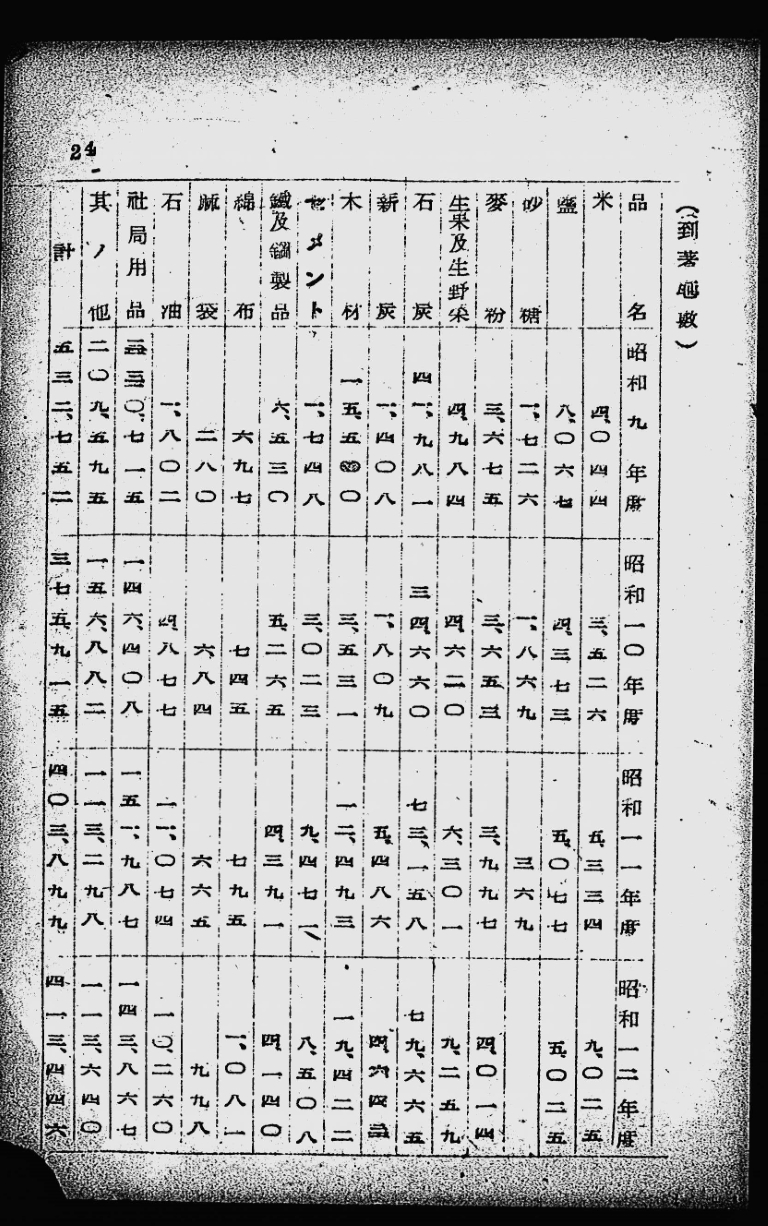 （到著噸數）
品名 昭和九年度 昭和一〇年度 昭和一一年度 昭和一二年度
米 四、〇四四 三、五二六 五、三三四 九、〇二五
鹽 八、〇六七 四、三七三 五、〇七七 五、〇二五
砂糖 一、七二六 一、八六九 三六九
麥粉 三、六七五 三、六五三 三、九九七 四、〇一四
生果及生野菜 四、九八四 四、六二〇 六、三〇一 九、二五九
石炭 四一、九八一 三四、六六〇 七三、一五八 七九、六六五
新炭 一、四〇八 一、八〇九 五、四八六 四、六四三
木材 一五、五〇〇 三、五三一 一二、四九三 一九、四二二
セメント 一、七四八 三、〇二三 九、四七一 八、五〇八
鐵及鋼製品 六、五三〇 五、二六五 四、三九一 四、一四〇
綿布 六九七 七四五 七九五 一、〇八一
麻袋 二八〇 六八四 六六五 九九八
石油 一、八〇二 四、八七七 一一、〇七四 一〇、二六〇
社局用品 二三〇、七一五 一四六、四〇八 一五一、九八七 一四三、八六七
其ノ他 二〇九、五九五 一五六、八八二 一一三、二九八 一一三、六四〇
計 五三二、七五二 三七五、九一五 四〇三、八九九 四一三、四四六
24